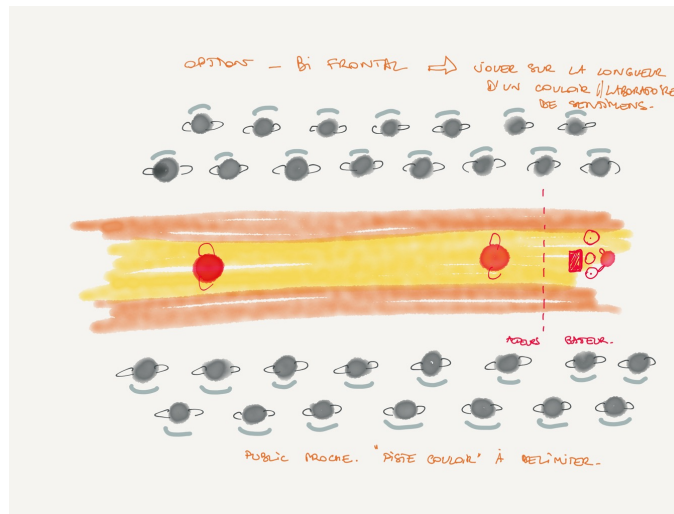 OPTION - Bi FRONTAL ⇨ JOUER SUR LA LONGUEUR
D'UN COULOIR // LABORATOIRE
DE SENTIMENS.
ACTEURS BATTEUR.
PUBLIC PROCHE. "PISTE COULOIR" À DELIMITER.